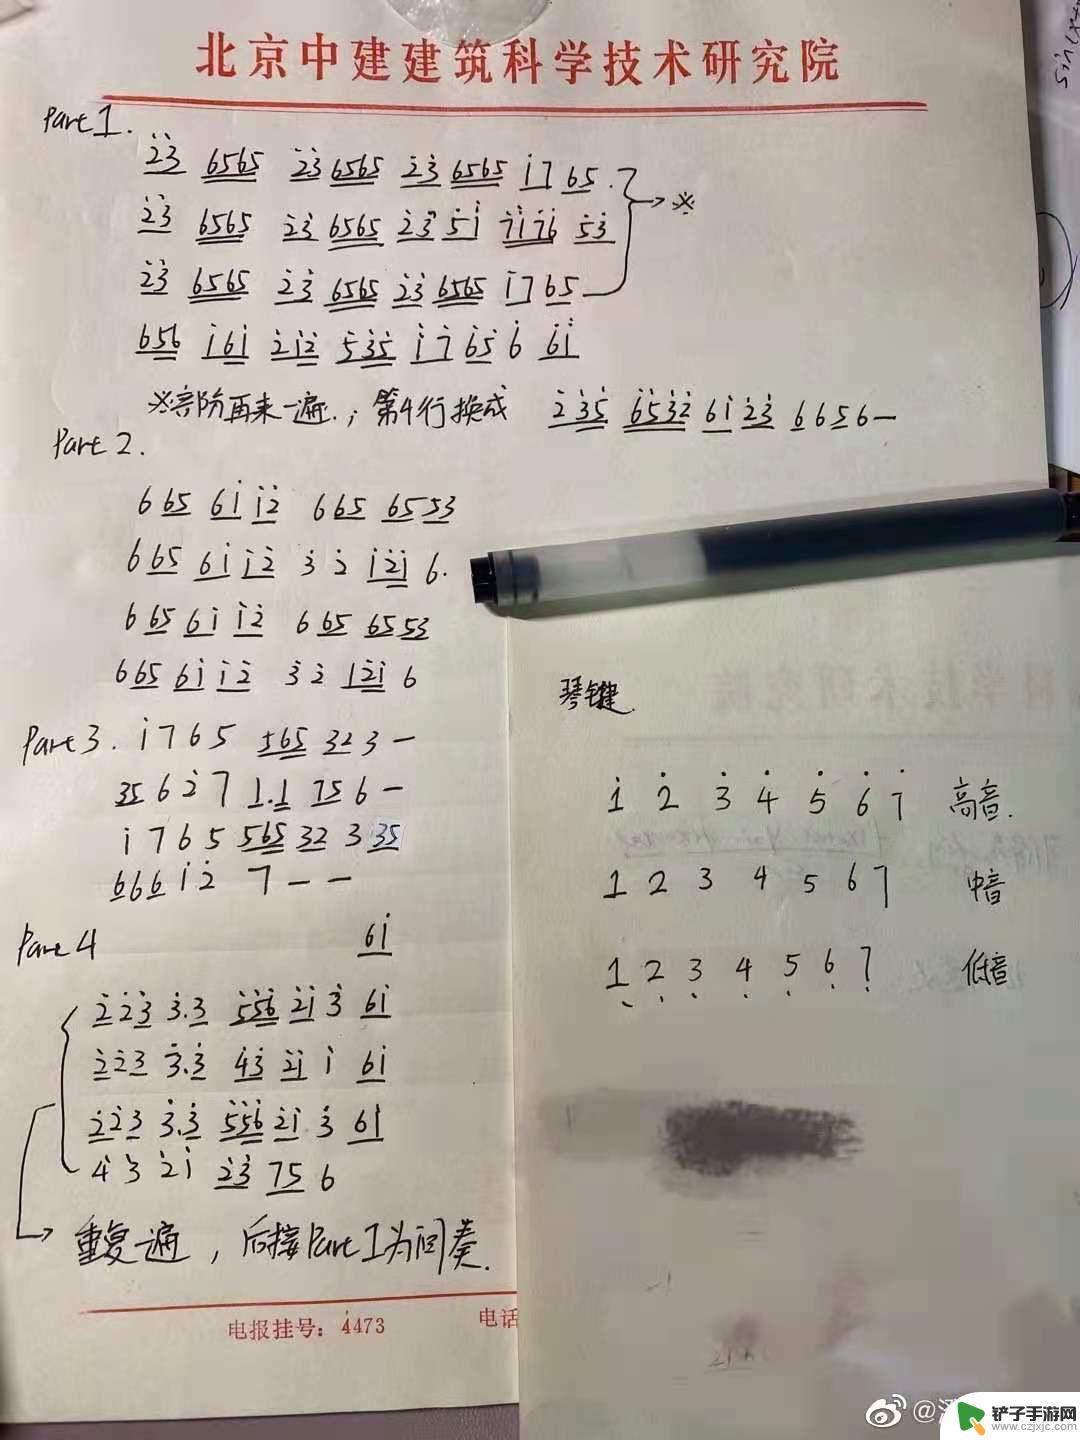 北京中建建筑科学技术研究院
Part 1.
2̇3̇ 6565 2̇3̇ 6565 2̇3̇ 6565 1̇7 65
※
2̇3̇ 6565 2̇3̇ 6565 2̇3̇ 5̇1̇ 7̇1̇7̇6̇ 5̇3̇
2̇3̇ 6565 2̇3̇ 6565 2̇3̇ 6565 1̇7 65
656 1̇61̇ 2̇1̇2̇ 5̇3̇5̇ 1̇7 65 6 61̇
再来一遍. ; 第4行换成 2̇3̇5̇ 6̇5̇3̇2̇ 61̇ 2̇3̇ 6 6 5 6 —
Part 2.
6 65 61̇ 1̇2̇ 6 65 65 53
6 65 61̇ 1̇2̇ 3̇ 2̇ 1̇2̇1̇ 6.
6 65 61̇ 1̇2̇ 6 65 65 53
6 65 61̇ 1̇2̇ 3̇ 2̇ 12̇1̇ 6
Part 3. 1̇ 7 6 5 565 32 3 —
35 6 2̇ 7 1.1 75 6 —
1̇ 7 6 5 565 32 3 35
6 6 6 1̇ 2̇ 7 — —
Part 4 61̇
2̇ 2̇ 3̇ 3̇.3̇ 5̇5̇6̇ 2̇1̇ 3̇ 61̇
2̇ 2̇ 3̇ 3̇.3̇ 4̇3̇ 2̇1̇ 1̇ 61̇
2̇ 2̇ 3̇ 3̇.3̇ 5̇5̇6̇ 2̇1̇ 3̇ 61̇
4̇ 3̇ 2̇ 1̇ 2̇3̇ 75 6
重复一遍, 后接Part 1为间奏.
电报挂号: 4473 电话
琴键
1̇ 2̇ 3̇ 4̇ 5̇ 6̇ 7̇ 高音.
1 2 3 4 5 6 7 中音
1̣ 2̣ 3̣ 4̣ 5̣ 6̣ 7̣ 低音
铲子手游网
www.czjxjc.com